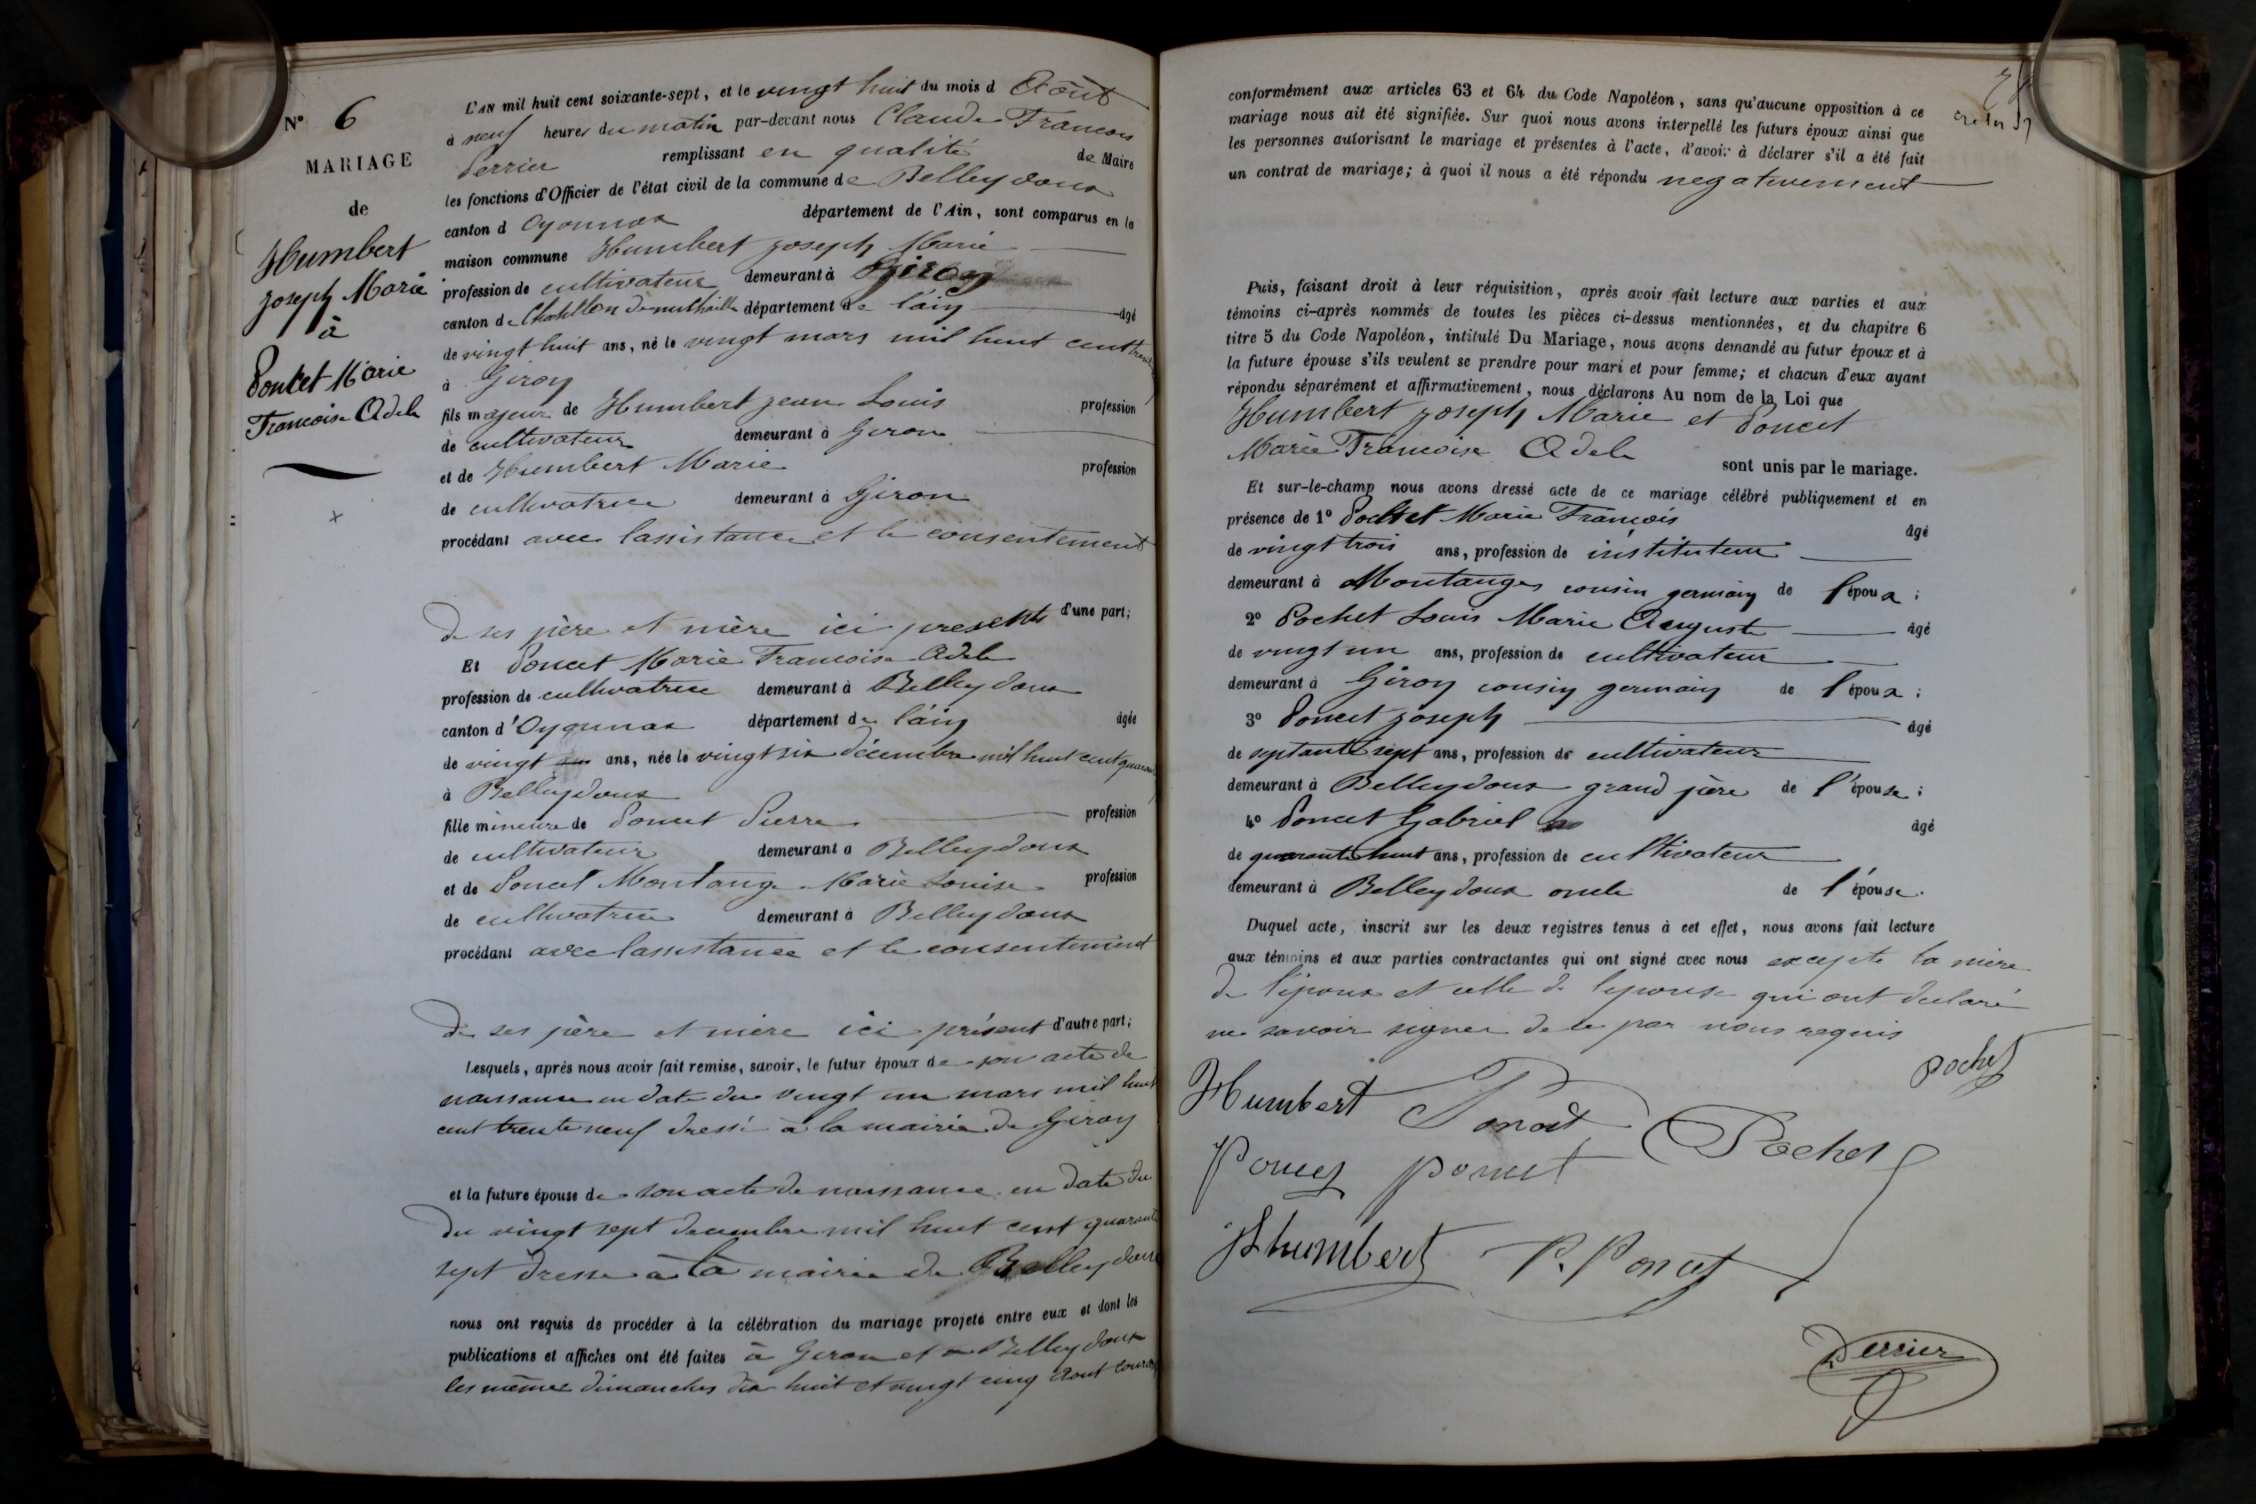 N° 6
MARIAGE
de
Humbert
Joseph Marie
à
Poncet Marie
Francoise Adele
L'AN mil huit cent soixante-sept, et le vingt huit du mois d Août
à neuf heures du matin par-devant nous Claude Francois
Perrier remplissant en qualité de Maire
les fonctions d'Officier de l'état civil de la commune de Belleydoux
canton d Oyonnax département de l'Ain, sont comparus en la
maison commune Humbert Joseph Marie
profession de cultivateur demeurant à Giron
canton de Chatillon de michaille département de l'ain âgé
de vingt huit ans, né le vingt mars mil huit cent
à Giron
fils majeur de Humbert Jean Louis profession
de cultivateur demeurant à Giron
et de Humbert Marie profession
de cultivatrice demeurant à Giron
procédant avec lassistance et le consentement
de ses père et mère ici presents d'une part;
Et Poncet Marie Francoise Adele
profession de cultivatrice demeurant à Belleydoux
canton d'Oyonnax département de l'ain âgée
de vingt ans, née le vingt six décembre mil huit cent
à Belleydoux
fille mineure de Poncet Pierre profession
de cultivateur demeurant à Belleydoux
et de Poncet Montange Marie Louise profession
de cultivatrice demeurant à Belleydoux
procédant avec lassistance et le consentement
de ses père et mère ici présent d'autre part;
Lesquels, après nous avoir fait remise, savoir, le futur époux de son acte de
naissance en date du vingt un mars mil huit
cent trente neuf dressé à la mairie de Giron
et la future épouse de son acte de naissance en date du
du vingt sept decembre mil huit cent quarante
sept dresse à la mairie de Belleydoux
nous ont requis de procéder à la célébration du mariage projeté entre eux et dont les
publications et affiches ont été faites à Giron et a Belleydoux
les mêmes dimanches dix huit et vingt cinq aout courant
conformément aux articles 63 et 64 du Code Napoléon, sans qu'aucune opposition à ce
mariage nous ait été signifiée. Sur quoi nous avons interpellé les futurs époux ainsi que
les personnes autorisant le mariage et présentes à l'acte, d'avoir à déclarer s'il a été fait
un contrat de mariage; à quoi il nous a été répondu negativement
Puis, faisant droit à leur réquisition, après avoir fait lecture aux parties et aux
témoins ci-après nommés de toutes les pièces ci-dessus mentionnées, et du chapitre 6
titre 5 du Code Napoléon, intitulé Du Mariage, nous avons demandé au futur époux et à
la future épouse s'ils veulent se prendre pour mari et pour femme; et chacun d'eux ayant
répondu séparément et affirmativement, nous déclarons Au nom de la Loi que
Humbert Joseph Marie et Poncet
Marie Francoise Adele sont unis par le mariage.
Et sur-le-champ nous avons dressé acte de ce mariage célébré publiquement et en
présence de 1° Pochet Marie François âgé
de vingt trois ans, profession de instituteur
demeurant à Montanges cousin germain de l'époux;
2° Pochet Louis Marie Auguste âgé
de vingt un ans, profession de cultivateur
demeurant à Giron cousin germain de l'époux;
3° Poncet Joseph âgé
de septante sept ans, profession de cultivateur
demeurant à Belleydoux grand père de l'épouse;
4° Poncet Gabriel âgé
de quarante huit ans, profession de cultivateur
demeurant à Belleydoux oncle de l'épouse.
Duquel acte, inscrit sur les deux registres tenus à cet effet, nous avons fait lecture
aux témoins et aux parties contractantes qui ont signé avec nous excepté la mère
de l'époux et celle de lepouse qui ont declaré
ne savoir signer de ce par nous requis
Pochet
Humbert Poncet
Poncet Poncet Pochet
Jl humbert P. Poncet
Perrier